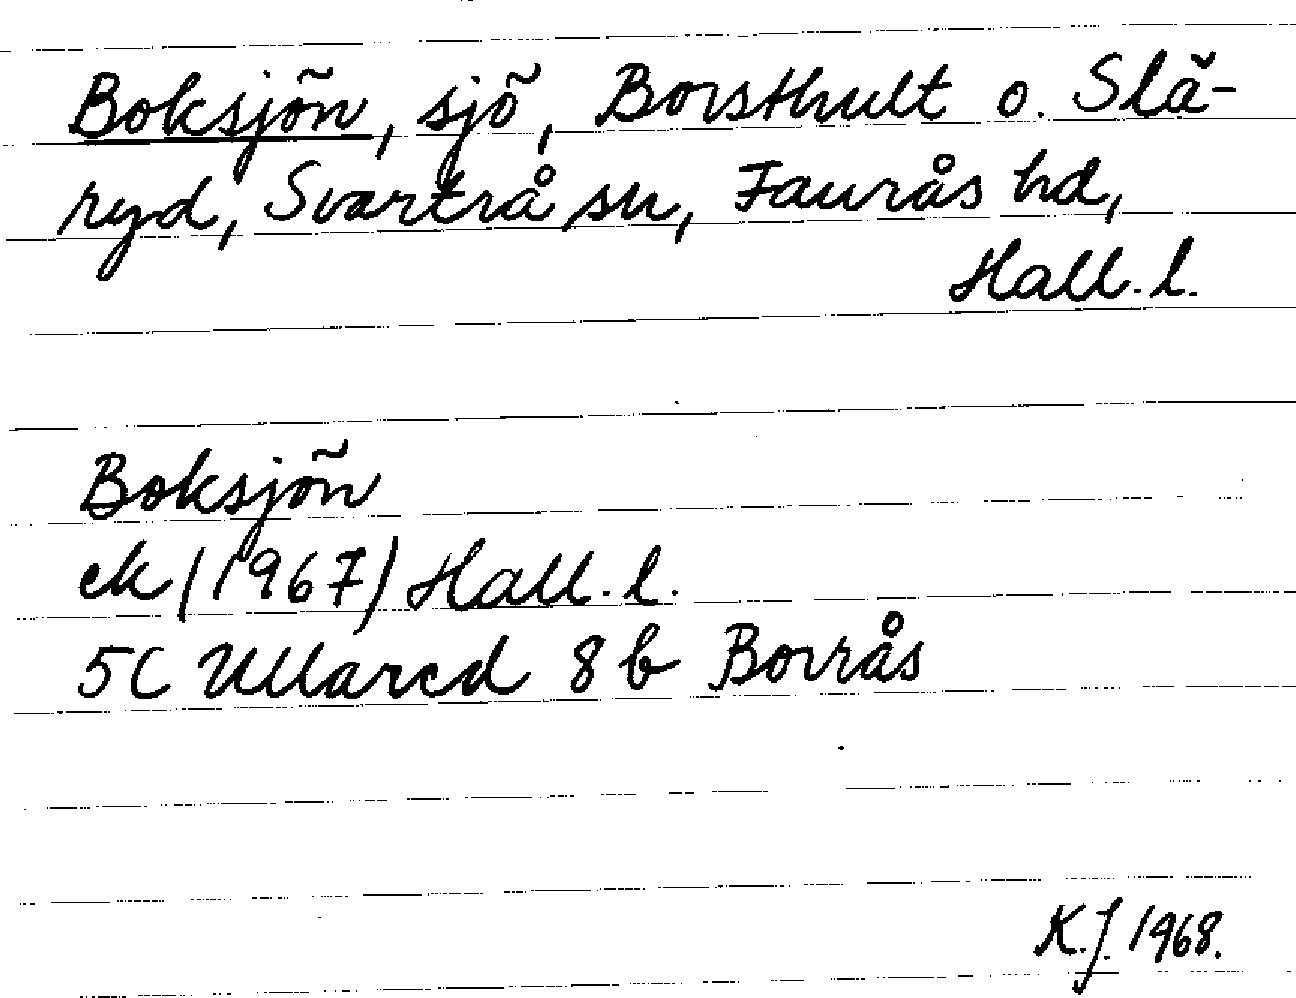 Boksjön, sjö, Borsthult o. Slä-
ryd, Svartrå sn, Faurås hd,
Hall. l.
Boksjön
ek (1967) Hall. l.
5C Ullared 8 b Borrås
K.J. 1968.